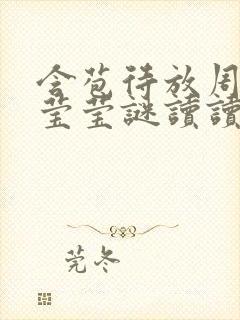 含苞待放周
莹莹謎讀讀
莞冬